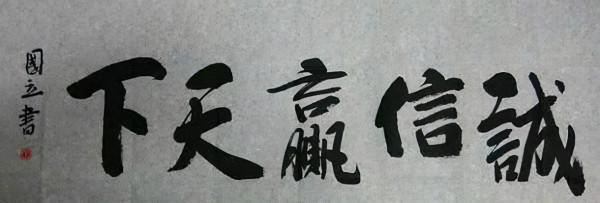 誠信贏天下
國立書